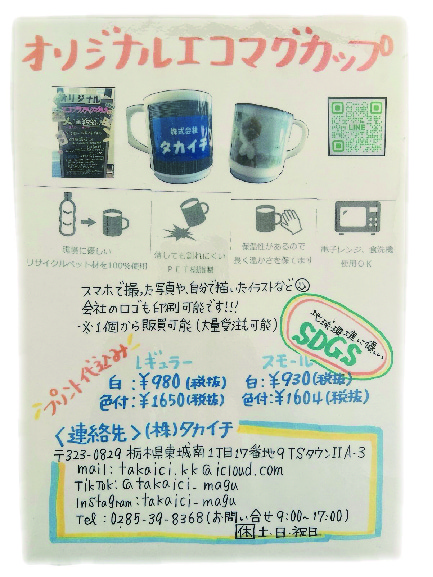 オリジナルエコマグカップ
オリジナル
株式会社
タカイチ
LINE
環境に優しい
リサイクルペット材を100%使用
落しても割れにくい
PCT樹脂製
保温性があるので
長く温かさを保てます
電子レンジ、食洗機
使用OK
スマホで撮った写真や、自分で描いたイラストなど
会社のロゴも印刷可能です!!!
※1個から販売可能(大量受注も可能)
地球環境に優しい
SDGS
プリント代込み
レギュラー
白:¥980(税抜)
色付:¥1650(税抜)
スモール
白:¥930(税抜)
色付:¥1604(税抜)
〈連絡先〉(株)タカイチ
〒323-0829 栃木県東城南1丁目17番地9 TS'タウンⅡA-3
mail:takaici.kk@icloud.com
TikTok:@takaici_magu
Instagram:takaici_magu
Tel:0285-39-8368(お問い合せ9:00~17:00)
休 土・日・祝日